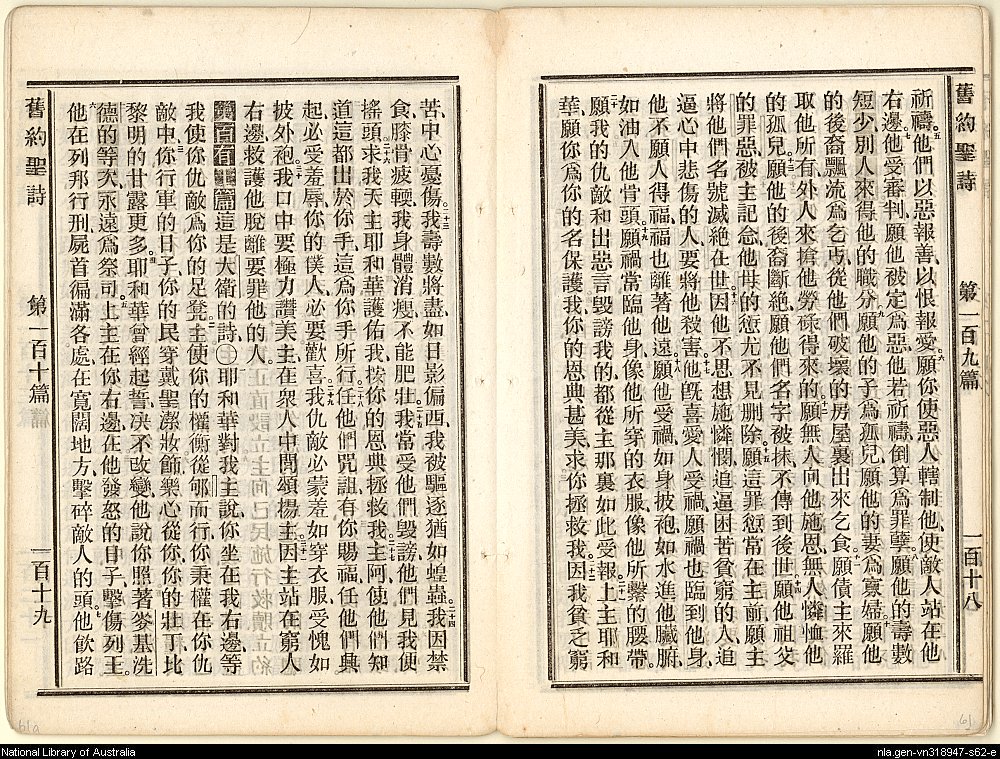 舊約聖詩 第一百九篇 一百十八
祈禱、他們以惡報善、以恨報愛。願你使惡人轄制他、使敵人站在他
右邊。他受審判、願他被定爲惡、他若祈禱、倒算爲罪孽。願他的壽數
短少、別人來得他的職分。願他的子爲孤兒、願他的妻爲寡婦。願他
的後裔飄流爲乞丐、從他們破壞的房屋裏出來乞食。願債主來羅
取他所有、外人來搶他勞碌得來的。願無人向他施恩、無人憐恤他
的孤兒。願他的後裔斷絶、願他們名字被抹、不傳到後世。願他祖父
的罪惡、被主記念、他母的愆尤、不見删除。願這罪愆常在主前、願主
將他們名號滅絶在世。因他不思想施憐憫、追逼困苦貧窮的人、追
逼心中悲傷的人、要將他殺害。他旣喜愛人受禍、願禍也臨到他身、
他不願人得福、福也離著他遠。願他受禍、如身被袍、如水進他臟腑、
如油入他骨頭。願禍常臨他身、像他所穿的衣服、像他所繫的腰帶。
願我的仇敵和出惡言毀謗我的、都從主那裏如此受報。上主耶和
華、願你爲你的名保護我、你的恩典甚美、求你拯救我。因我貧乏窮
苦、中心憂傷。我壽數將盡、如日影偏西、我被驅逐、猶如蝗蟲。我因禁
食、膝骨疲輭、我身體消瘦、不能肥壯。我常受他們毀謗、他們見我便
搖頭。求我天主耶和華護佑我、按你的恩典拯救我。主阿、使他們知
道這都出於你手、這爲你手所行。任他們咒詛、有你賜福、任他們興
起、必受羞辱、你的僕人、必要歡喜。我仇敵必蒙羞如穿衣服、受愧如
披外袍。我口中要極力讚美主、在衆人中間頌揚主。因主站在窮人
右邊、救護他脫離要罪他的人。
第百有十篇 這是大衛的詩㊀耶和華對我主說、你坐在我右邊、等
我使你仇敵爲你的足凳。主使你的權衡從郇而行、你秉權在你仇
敵中。你行軍的日子、你的民穿戴聖潔妝飾、樂心從你、你的壯丁比
黎明的甘露更多。耶和華曾經起誓、决不改變、他說、你照著麥基洗
德的等次、永遠爲祭司。上主在你右邊、在他發怒的日子、擊傷列王。
他在列邦行刑、屍首徧滿各處、在寬闊地方、擊碎敵人的頭。他飲路
舊約聖詩 第一百十篇 一百十九
61a
61
National Library of Australia
nla.gen-vn318947-s62-e